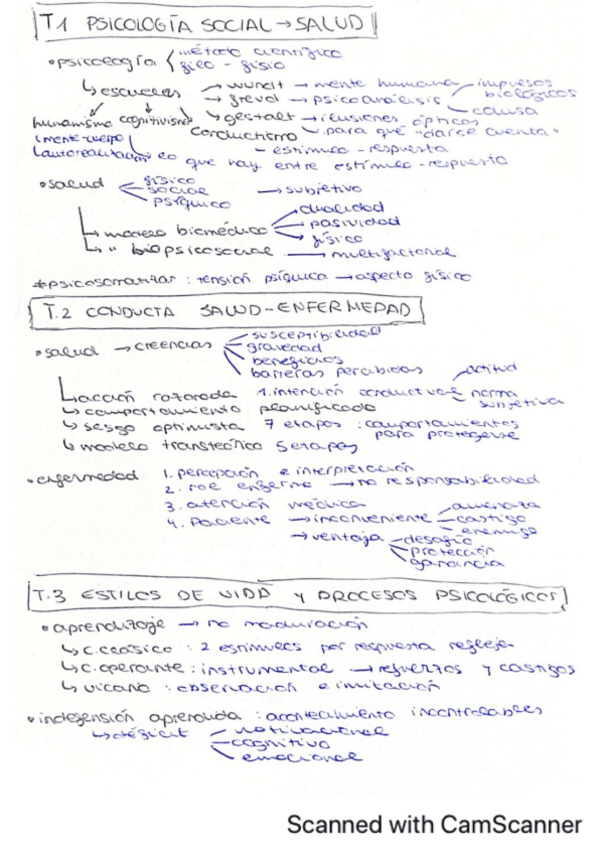 T.1 PSICOLOGÍA SOCIAL → SALUD
• psicología { método científico
filo - fisio
↳ escuelas → wundt → mente humana impulsos biológicos
→ freud → psicoanálisis causa
→ gestalt → ilusiones ópticas
humanismo cognitivismo conductismo para qué "darse cuenta"
(mente-cuerpo - estímulo - respuesta
(autorrealización lo que hay entre estímulo - respuesta
• salud físico
social → subjetivo
psíquico
↳ modelo biomédico dualidad
pasividad
físico
↳ " biopsicosocial → multifactorial
* psicosomatizar : tensión psíquica → aspecto físico
T.2 CONDUCTA SALUD-ENFERMEDAD
• salud → creencias susceptibilidad
gravedad
beneficios
barreras percibidas
↳ acción razonada 1. intención conductual actitud
norma subjetiva
↳ comportamiento planificado
↳ sesgo optimista 7 etapas : comportamientos para protegerse
↳ modelo transteórico 5 etapas
• enfermedad 1. percepción e interpretación
2. rol enfermo → no responsabilidad
3. atención médica
4. Paciente → inconveniente amenaza
castigo
enemigo
→ ventaja desafío
protección
ganancia
T.3 ESTILOS DE VIDA Y PROCESOS PSICOLÓGICOS
• aprendizaje → no maduración
↳ c. clásico : 2 estímulos por respuesta refleja
↳ c. operante : instrumental → refuerzos y castigos
↳ vicario : observación e imitación
• indefensión aprendida : acontecimiento incontrolables
↳ déficit motivacional
cognitivo
emocional
Scanned with CamScanner